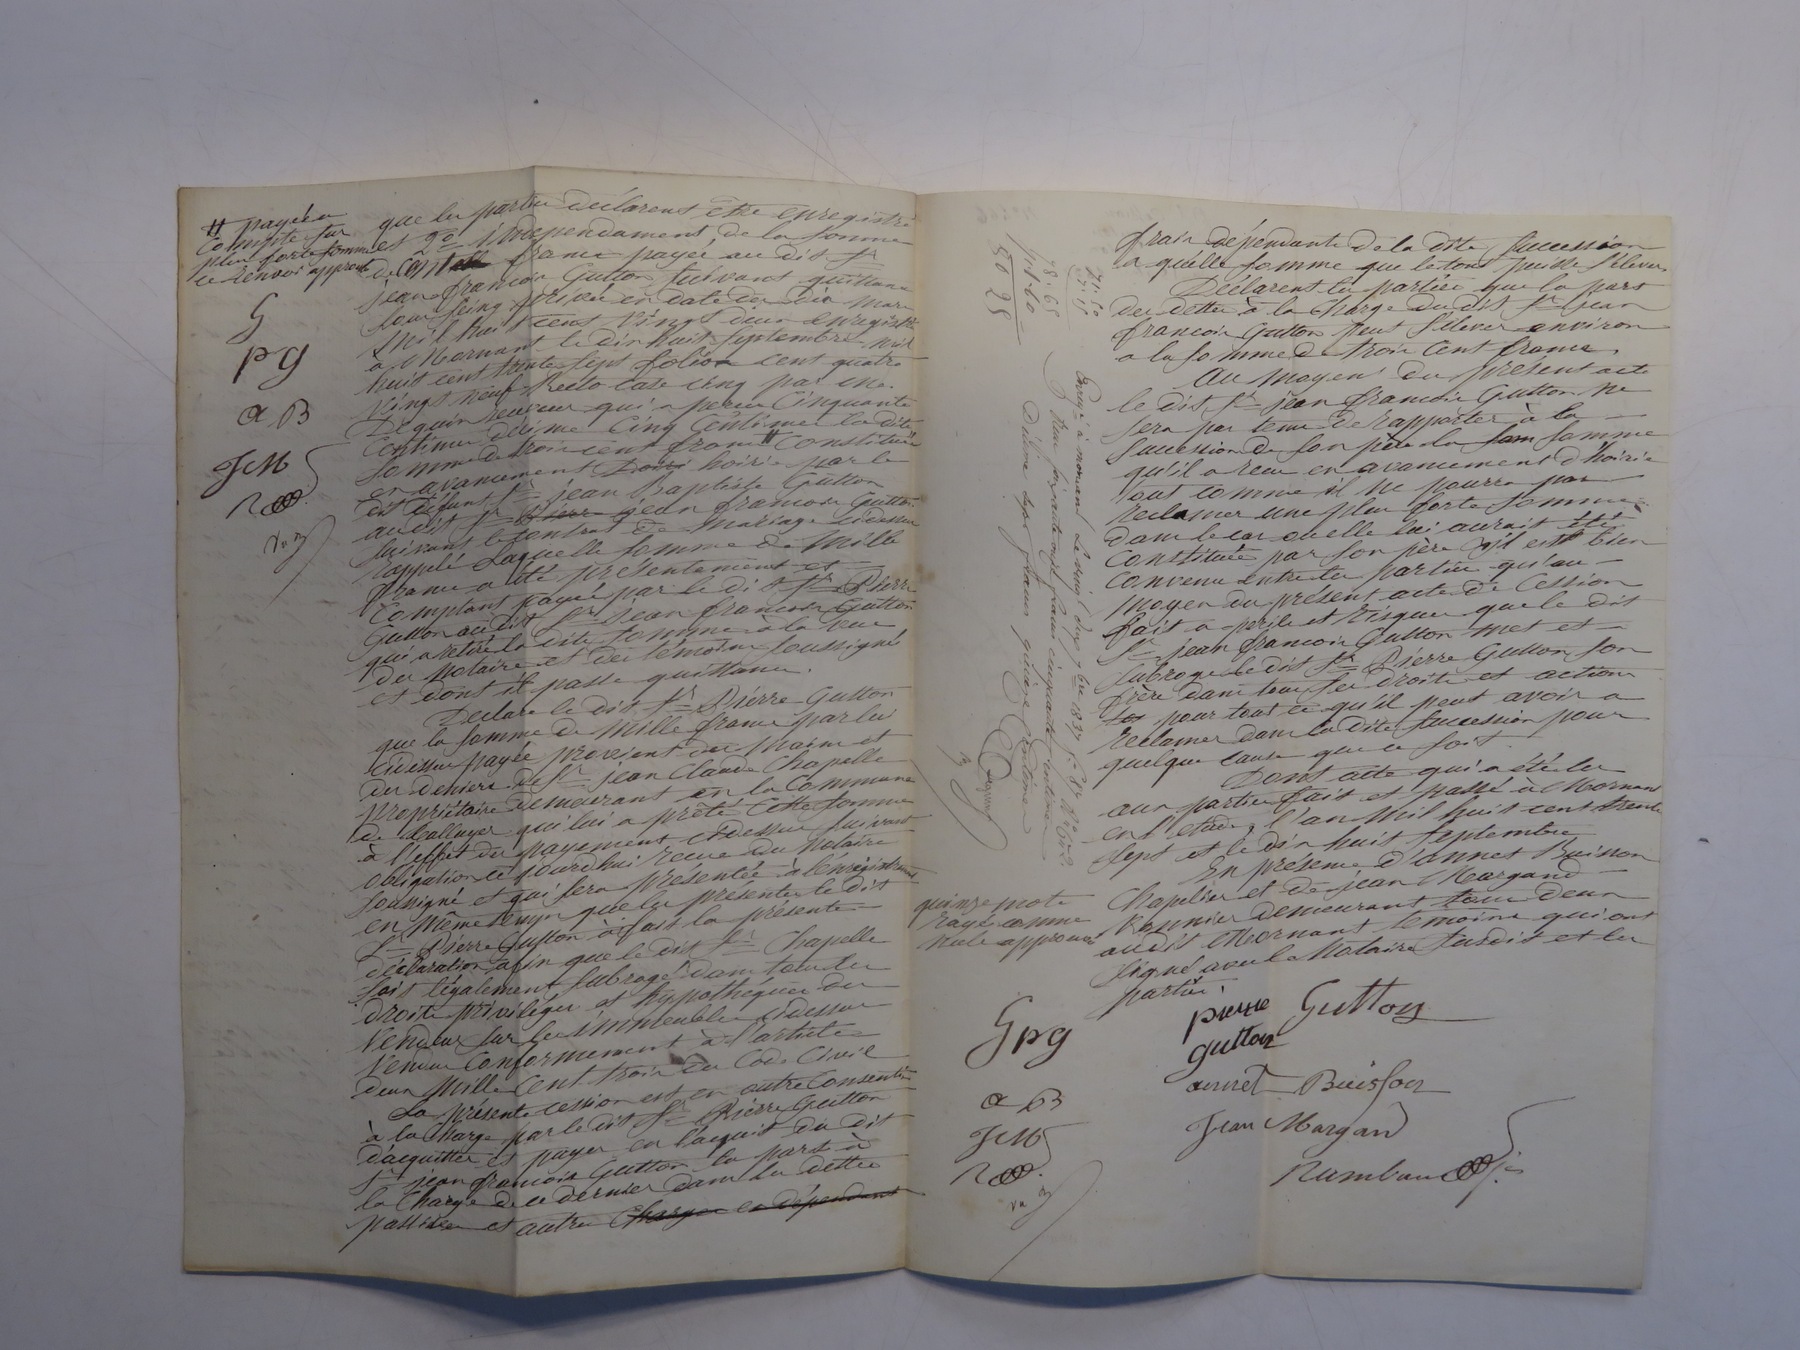 # payée a
Compte sur
plus forte somme
ce renvoi approuvé
G
pg
a B
JM
R
que les parties déclarent être enregistré
et 2º indépendament de la somme
de francs payée au dit Sr
jean francois Gutton suivant quittance
sous seing privée en date du dix mars
mil huit cent vingt deux enregistré
à Mornant le dix huit septembre mil
huit cent trente sept folio cent quatre
vingt neuf Recto case cinq par Mr
Deguin receveur qui a perçu cinquante
Centimes décime cinq Centimes la dite
somme de trois cent francs # Constituée
en avancement hoirie par le
dit défunt Sr jean Baptiste Gutton
au dit Sr Pierre jean francois Gutton
suivant le contrat de mariage cidessus
rappelé Laquelle somme de Mille
francs a été présentement et
Comptant payée par le dit Sr Pierre
Gutton au dit Sr Jean francois Gutton
qui a retiré la dite somme à la vue
du Notaire et des témoins soussignés
et dont il passe quittance.
Déclare le dit Sr Pierre Gutton
que la somme de Mille francs par lui
cidessus payée provient des mains et
des deniers de Sr jean Claude Chapelle
propriétaire demeurant en la Commune
de qui lui a prêté cette somme
à l'effet du payement cidessus suivant
obligation ce jourdhui reçue du Notaire
soussigné et qui sera présentée à l'enregistrement
en même temps que les présentes le dit
Sr Pierre Gutton a fait la présente
déclaration afin que le dit Sr Chapelle
soit légalement subrogé dans tous les
droits privilèges et hypothèques du
Vendeur sur les immeubles cidessus
Vendus Conformement à l'article
deux Mille Cent trois du Code Civil
La présente cession est en outre Consentie
à la Charge par le dit Sr Pierre Gutton
d'acquitter et payer en l'acquit du dit
Sr jean francois Gutton la part à
la Charge de ce dernier dans les dettes
passives et autres Charges en dépendant
frais dépendants de la dite Succession
a quelle somme que le tout puisse s'élever
Déclarent les parties que la part
des dettes à la Charge du dit Sr jean
francois Gutton peut s'élever environ
a la somme de trois cent francs.
Au moyen du présent acte
le dit Sr jean francois Gutton ne
sera pas tenu de rapporter à la
succession de son père la som somme
qu'il a reçue en avancement d'hoirie
tout comme il ne pourra pas
reclamer une plus forte somme
dans le cas ou elle lui aurait été
Constituée par son père s'il est bien
Convenu entre les parties qu'au
moyen du présent acte de Cession
fait a perils et risques que le dit
Sr jean francois Gutton met et
subroge le dit Sr Pierre Gutton son
frère dans tous ses droits et actions
pour tout ce qu'il peut avoir a
reclamer dans la dite succession pour
quelque cause que ce soit
Dont acte qui a été lu
aux parties fait et passé à Mornant
en l'étude, l'an mil huit cent trente
sept et le dix huit septembre
En présence d'annet Buisson
Chapelier et de jean Margand
demeurant tous deux
au dit Mornant témoins qui ont
signé avec le Notaire susdit et les
parties.
71: 50
78: 65
50 25
à mornant le vingt cinq 7bre 1837
Reçu soixante onze francs cinquante centimes
Décime sept francs quinze Centimes
quinze mots
rayés comme
nuls approuvés
G pg
a B
JM
R
pierre Gutton
gutton
annet Buisson
Jean Margand